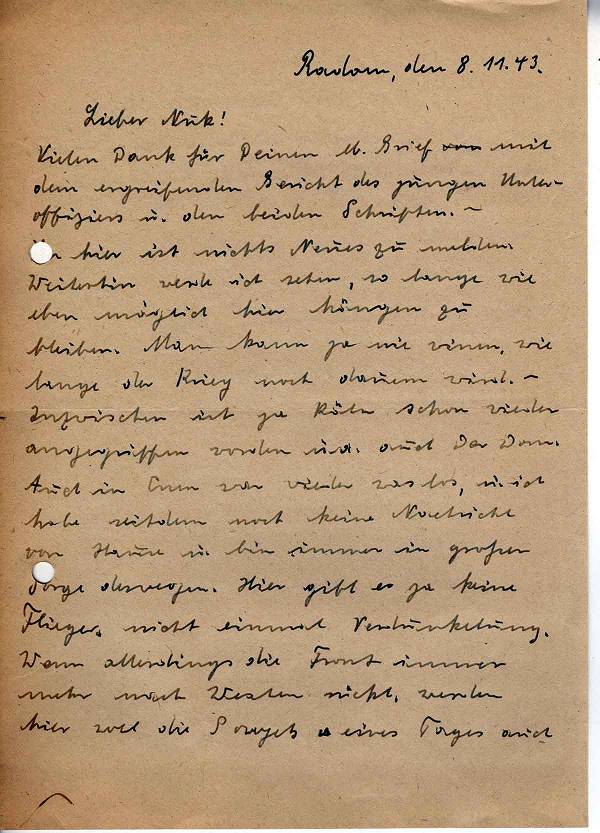 Radom, den 8.11.43.
Lieber Nuk!
Vielen Dank für Deinen lb. Brief mit
dem ergreifenden Bericht des jungen Unter-
offiziers u. den beiden Schriften. ~
hier ist nichts Neues zu melden.
Weiterhin werde ich sehen, so lange wie
eben möglich hier hängen zu
bleiben. Man kann ja nie wissen, wie
lange der Krieg noch dauern wird. ~
Inzwischen ist ja Köln schon wieder
angegriffen worden u.a. auch der Dom.
Auch in war wieder was los, u. ich
habe seitdem noch keine Nachricht
von Hause u. bin immer in großer
Sorge deswegen. Hier gibt es ja keine
Flieger, nicht einmal Verdunkelung.
Wenn allerdings die Front immer
mehr nach Westen rückt, werden
hier wohl die Sowjets eines Tages auch